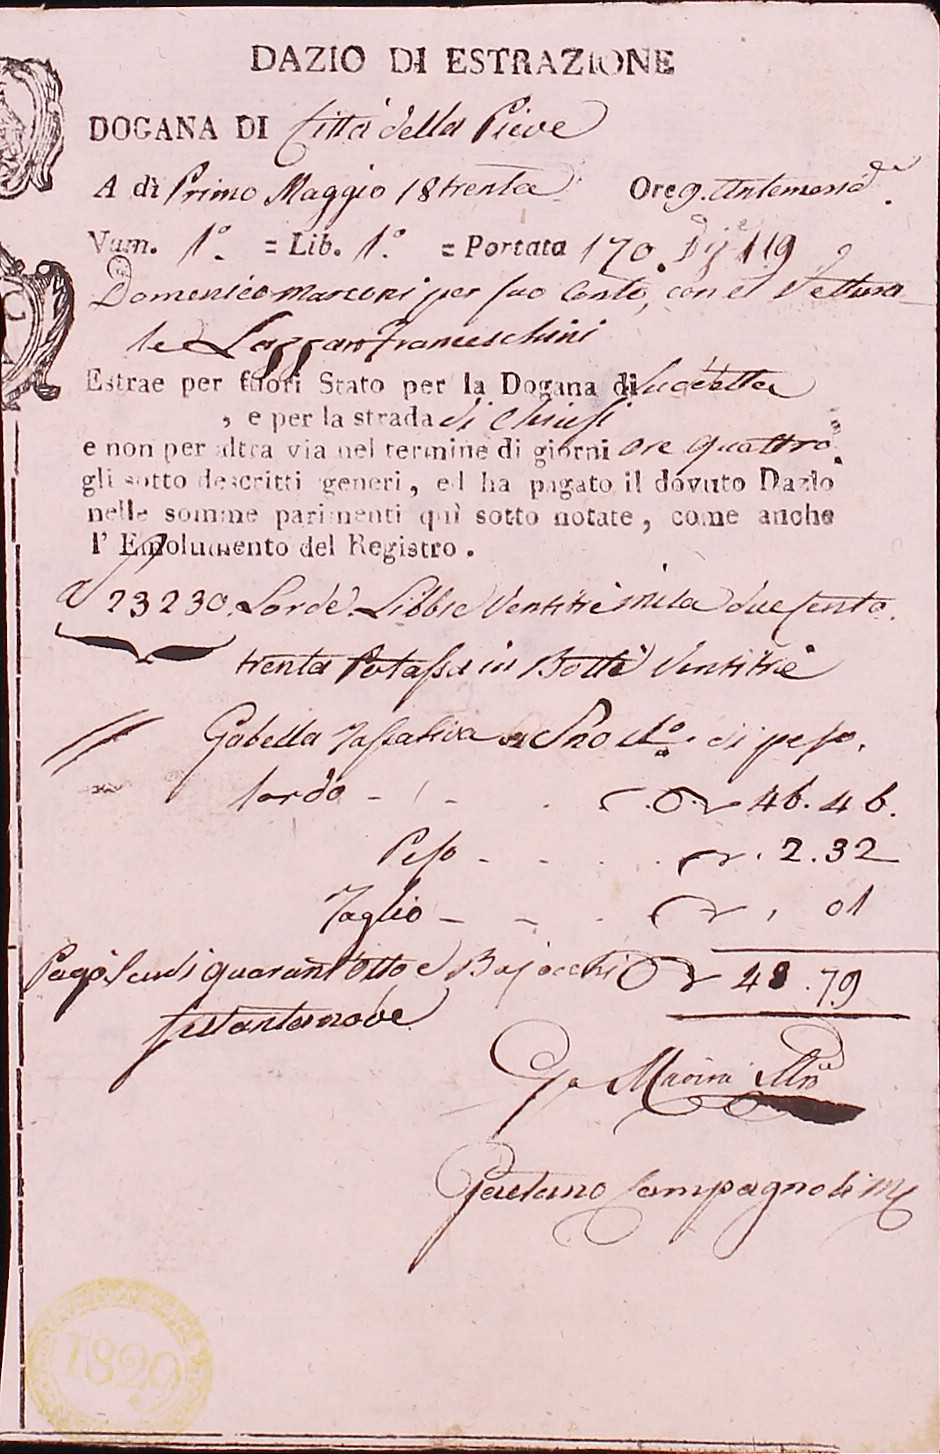 DAZIO DI ESTRAZIONE
DOGANA DI Città della Pieve
A dì Primo Maggio 18trenta Ore 9. Antemerid.e
Vum. 1.º = Lib. 1.º = Portata 170. 119
Domenico Marconi per suo Conto, con Vettura
le Lazzaro Franceschini
Estrae per fuori Stato per la Dogana di
, e per la strada di Chiusi
e non per altra via nel termine di giorni ore quattro.
gli sotto descritti generi, ed ha pagato il dovuto Dazio
nelle somme parimenti quì sotto notate, come anche
l' Emolumento del Registro.
23230. Lorde. Libbre Ventitremila duecento.
trenta Potassa in Botti Ventitrè
Gabella Tassativa di peso.
lordo - - . 46. 46.
Peso - - . . 2. 32
Taglio - - . 01
Pagò Scudi quarant'otto e Bajocchi 48. 79
settantanove
Gaetano Campagnoli
1829